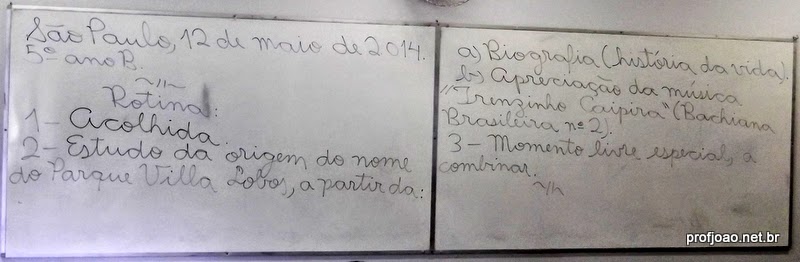 São Paulo, 12 de maio de 2014.
5º ano B.
~//~
Rotina:
1- Acolhida.
2- Estudo da origem do nome
do Parque Villa Lobos, a partir da:
a) Biografia (história da vida).
b) Apreciação da música
"Trenzinho Caipira" (Bachiana
Brasileira nº 2).
3- Momento livre especial, a
combinar.
~//~
profjoao.net.br